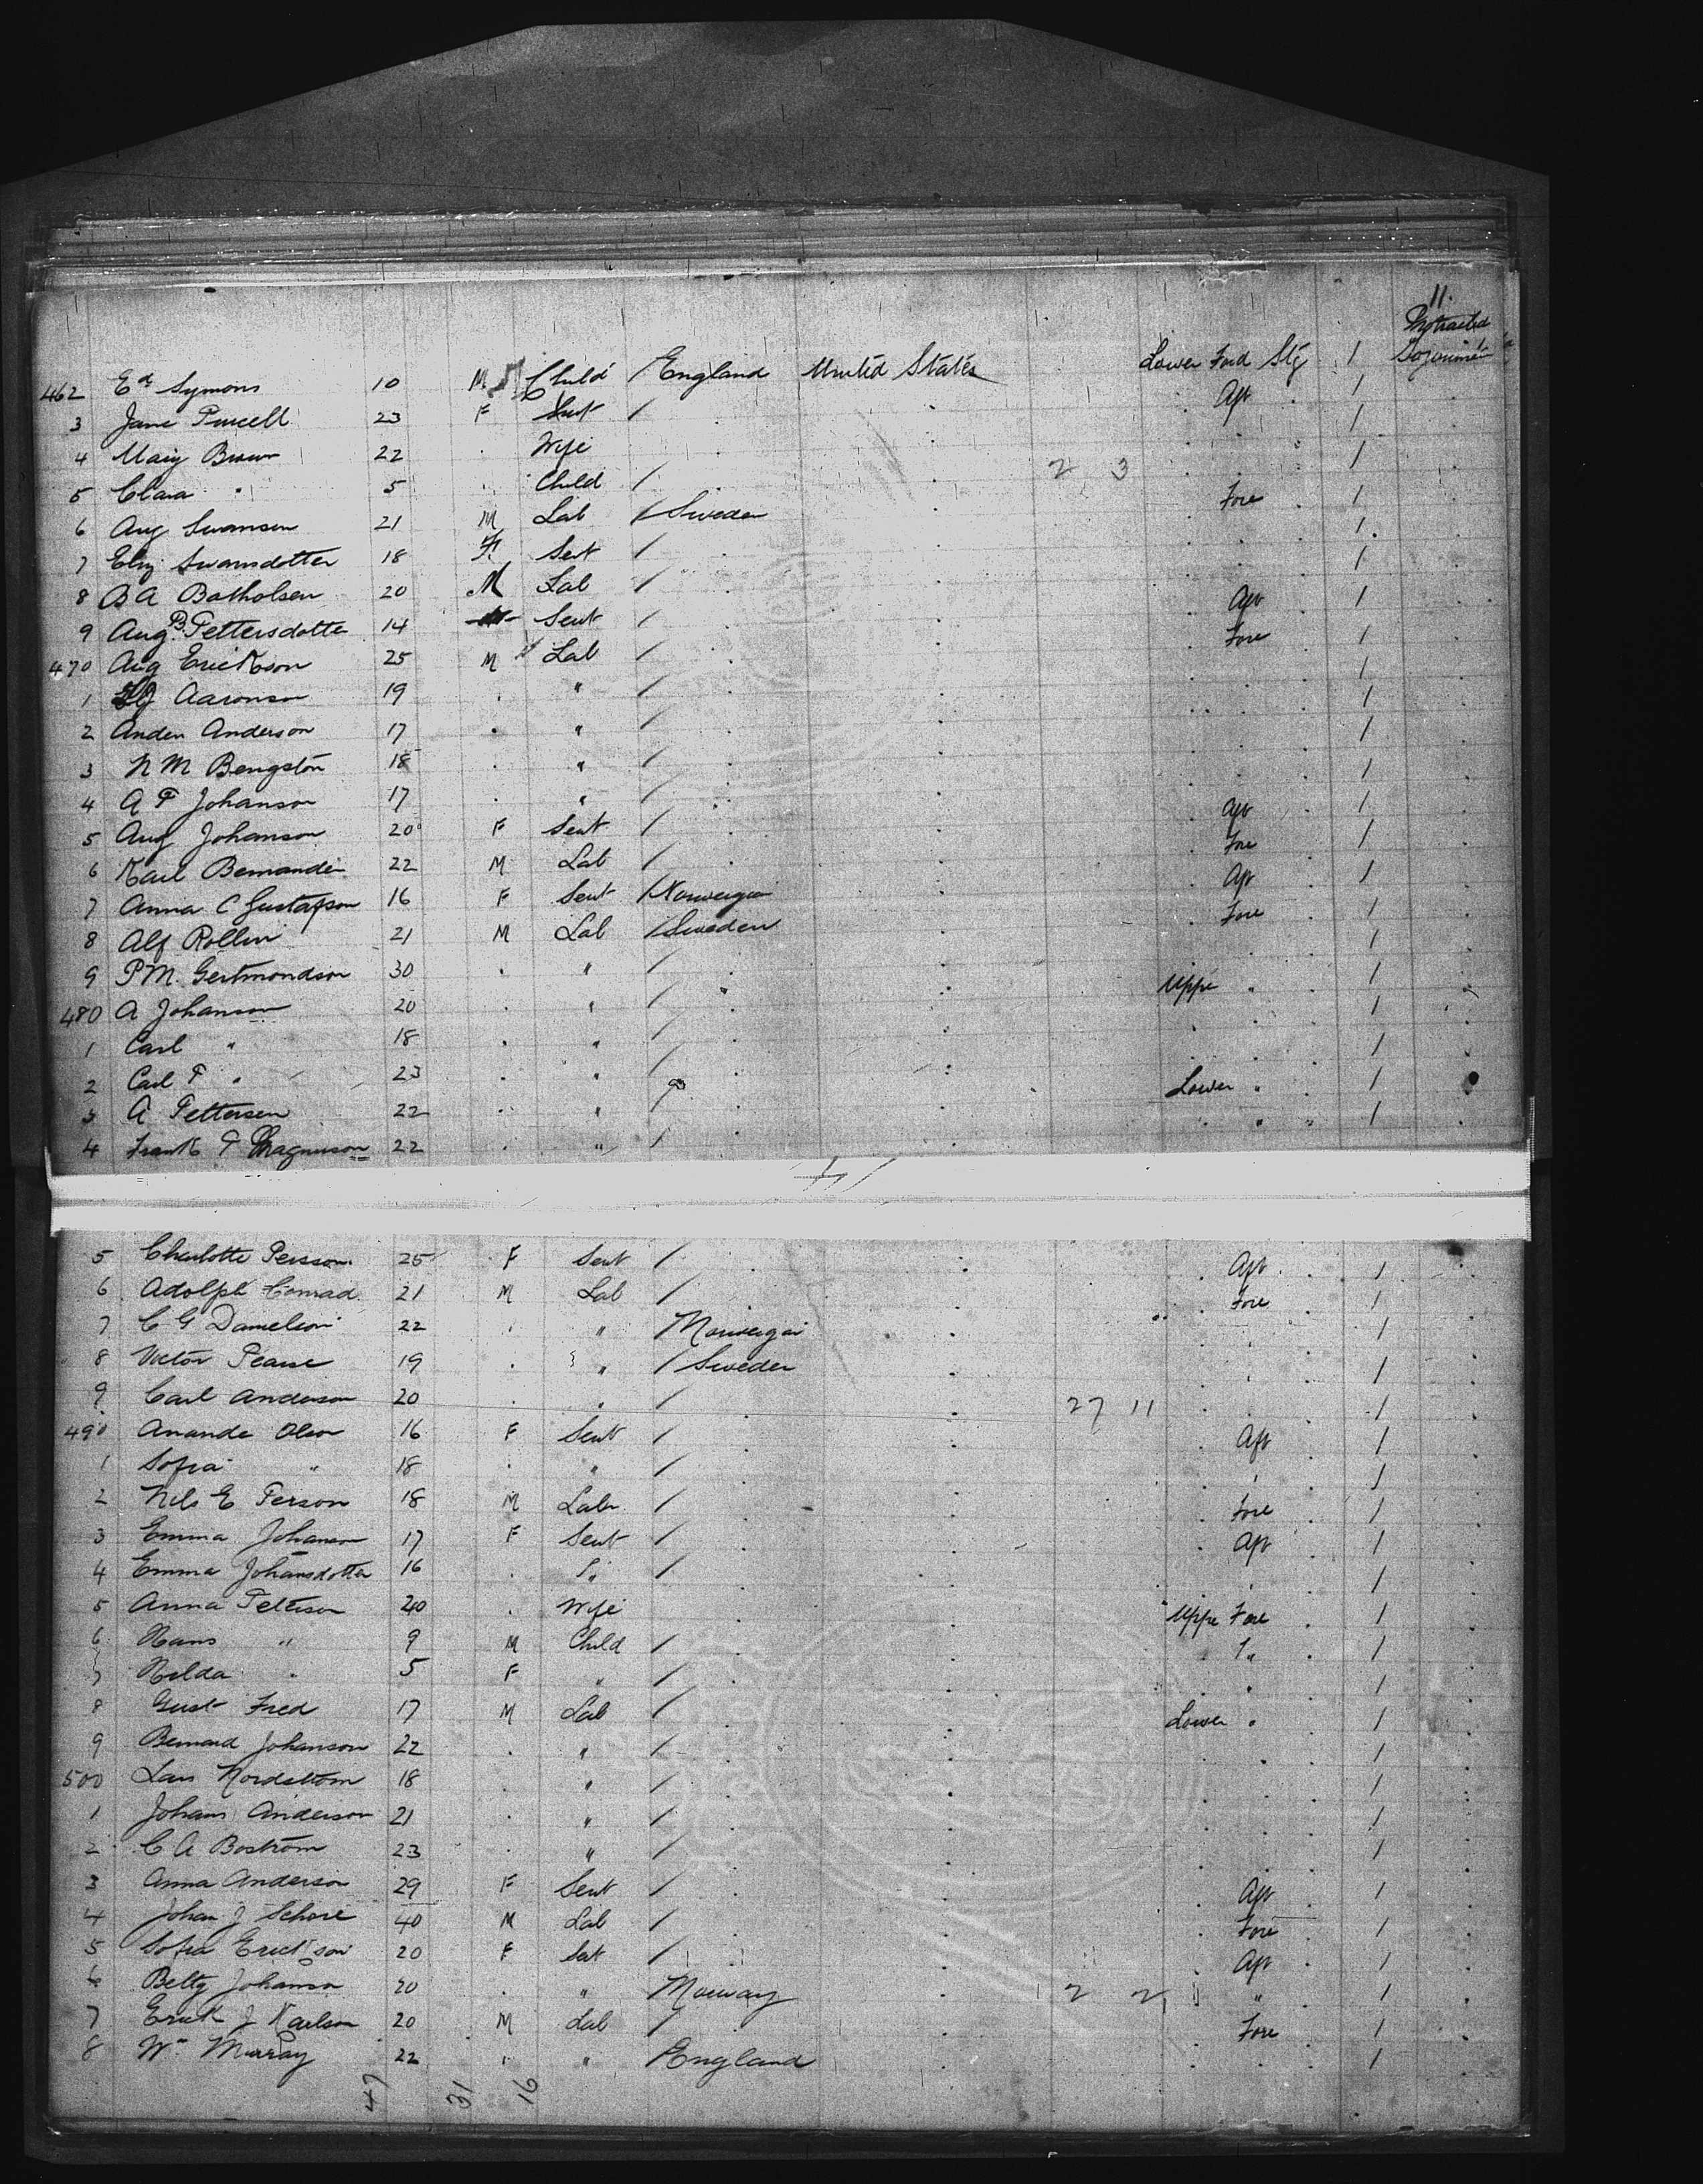 11.
Protracted
462 Ed Symons 10 M Child / England United States Lower Ford Stg 1 Sojourn
3 Jane Purcell 23 F Sert / . . Aft . 1
4 Mary Brown 22 . Wife . . . 1
5 Clara " 5 . Child / . . 2 3 . 1
6 Aug Swanson 21 M Lab / Sweden . Fore 1
7 Eliz Swansdotter 18 F Sert / . . 1
8 B A Batholsen 20 M Lab / . . 1
9 Aug. B. Pettersdotte 14 Sert / . . Aft . 1
470 Aug Erickson 25 M Lab / . . Fore 1
1 J Aaronson 19 . " / . . 1
2 Anden Anderson 17 . " / . . 1
3 N M Bengston 18 . " / . . 1
4 A F Johanson 17 . " / . . 1
5 Aug Johanson 20 F Sert / . . Aft . 1
6 Karl Bernander 22 M Lab / . . Fore 1
7 Anna C Gustafson 16 F Sert / Norwegen . Aft 1
8 Alf Rollin 21 M Lab / Sweden . Fore 1
9 P M. Gertmondson 30 . " / . . 1
480 A Johanson 20 . " / . . Uppe " 1
1 Carl " 18 . " / . . 1
2 Carl F " 23 . " / . . 1
3 A Pettersen 22 . " / . . Lower " 1
4 Frank F Magnuson 22 . " / . . " " 1
5 Charlotte Persson 25 F Sert / . . Aft . 1
6 Adolph Conrad 21 M Lab / . . Fore 1
7 C G Danielson 22 . " / Norwegai . 1
8 Victor Pearse 19 . " / Sweden . 1
9 Carl Anderson 20 . " / . . 27 11 . 1
490 Amanda Olson 16 F Sert / . . Aft 1
1 Sofia " 18 . " / . . 1
2 Nils E Person 18 M Labr / . . Fore 1
3 Emma Johanson 17 F Sert / . . Aft 1
4 Emma Johansdotter 16 . " / . . 1
5 Anna Petterson 40 . Wife . . Uppe Fore 1
6 Hans " 9 M Child / . . " 1
7 Hilda " 5 F " / . . 1
8 Gust Fred 17 M Lab / . . Lower " 1
9 Bernard Johanson 22 . " / . . 1
500 Lars Nordstrom 18 . " / . . 1
1 Johans Anderson 21 . " / . . 1
2 C A Bostrom 23 . " / . . 1
3 Anna Anderson 29 F Sert / . . Aft 1
4 Johan J Schore 40 M Lab / . . Fore 1
5 Sofia Erickson 20 F Sert / . . Aft 1
6 Betty Johanson 20 . " / Norway . 2 2 " 1
7 Erick J Karlson 20 M Lab / . . Fore 1
8 Wm Murray 22 . " / England . 1
47 31 16